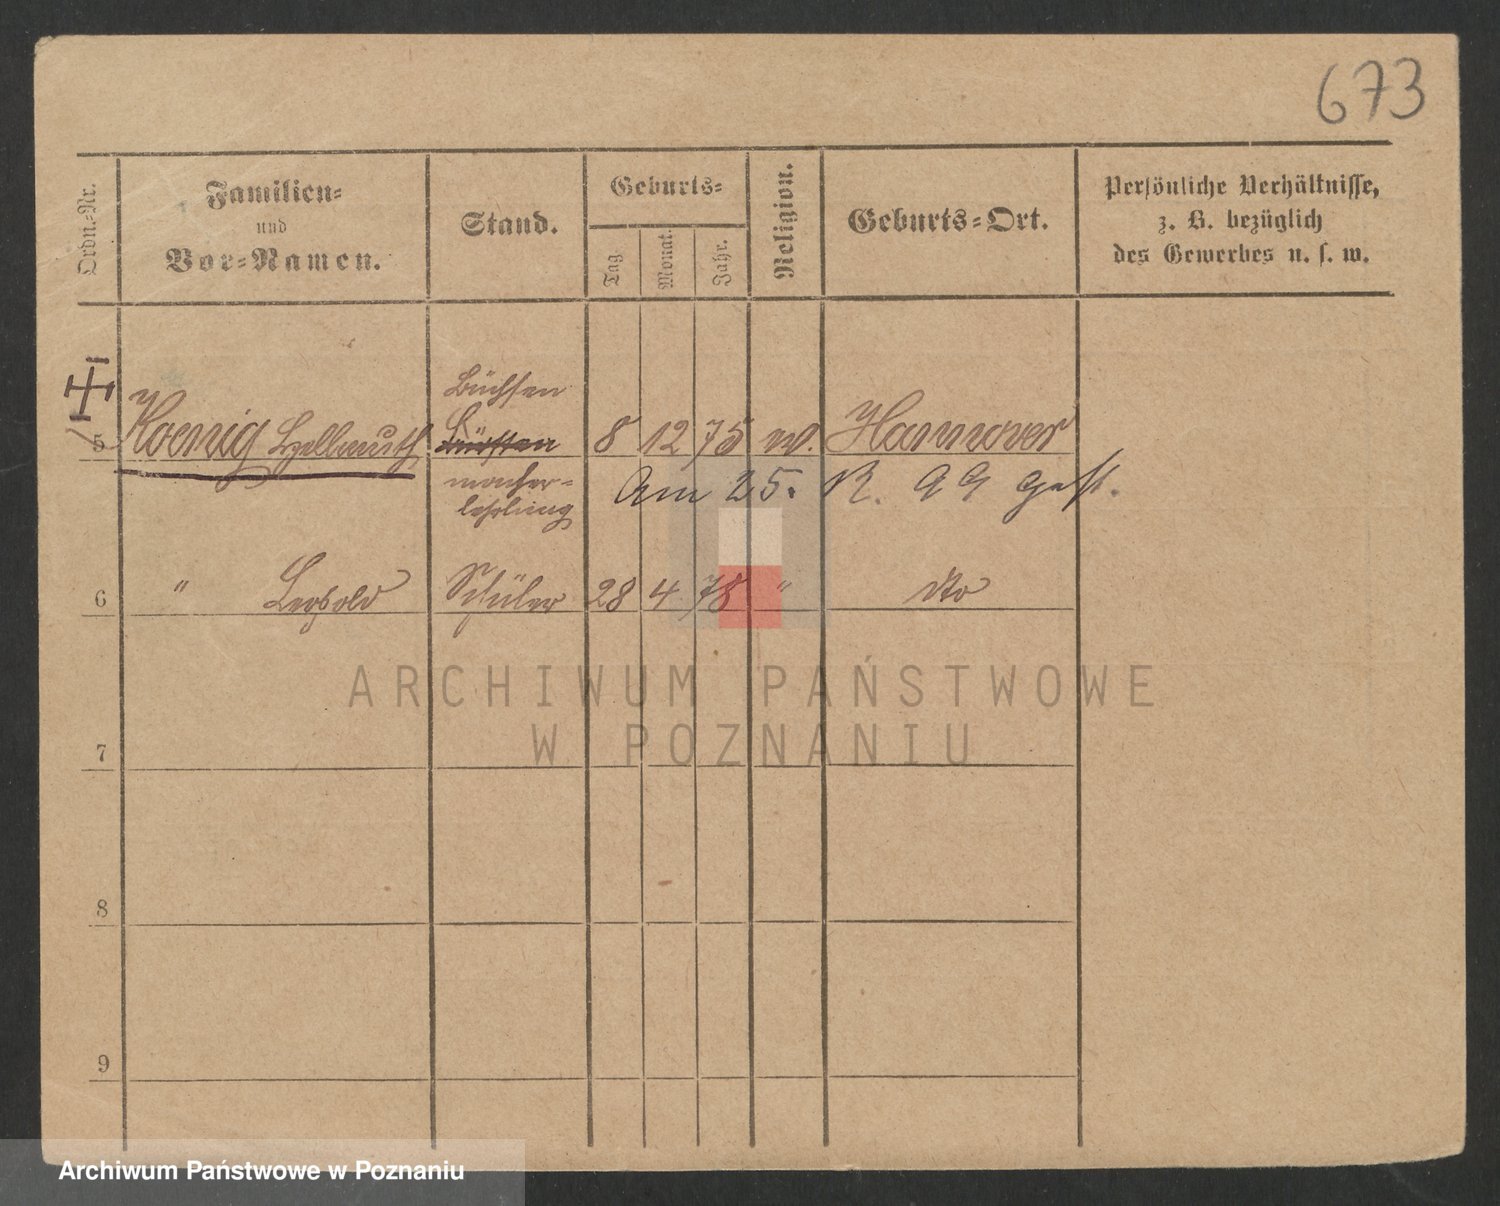 673
Ordn.-Nr.
Familien-
und
Vor-Namen.
Stand.
Geburts-
Tag.
Monat.
Jahr.
Religion.
Geburts-Ort.
Persönliche Verhältnisse,
z. B. bezüglich
des Gewerbes u. s. w.
Büchsen
5 Koenig Hellmuth 8 12 75 Hannover
macher-
lehrling
Am 25. 99 gest.
6 " Leopold Schüler 28 4 78 " dto
7
8
9
ARCHIWUM PAŃSTWOWE
W POZNANIU
Archiwum Państwowe w Poznaniu